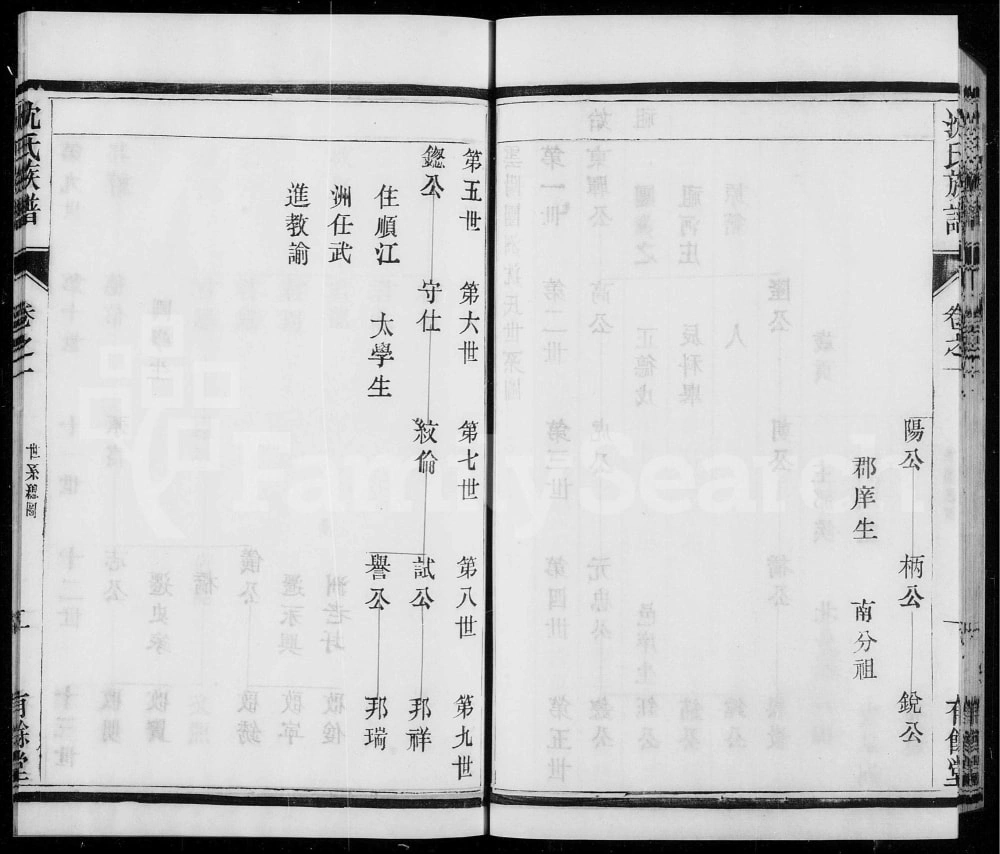 沈氏族譜
卷之一
有餘堂
陽公
郡庠生
柄公
南分祖
銳公
第五世
第六世
第七世
第八世
第九世
鑑公
守仕
紋倫
試公
邦祥
住順江
太學生
譽公
邦瑞
洲任武
進教諭
沈氏族譜
卷之一
世系總圖
有餘堂
FamilySearch